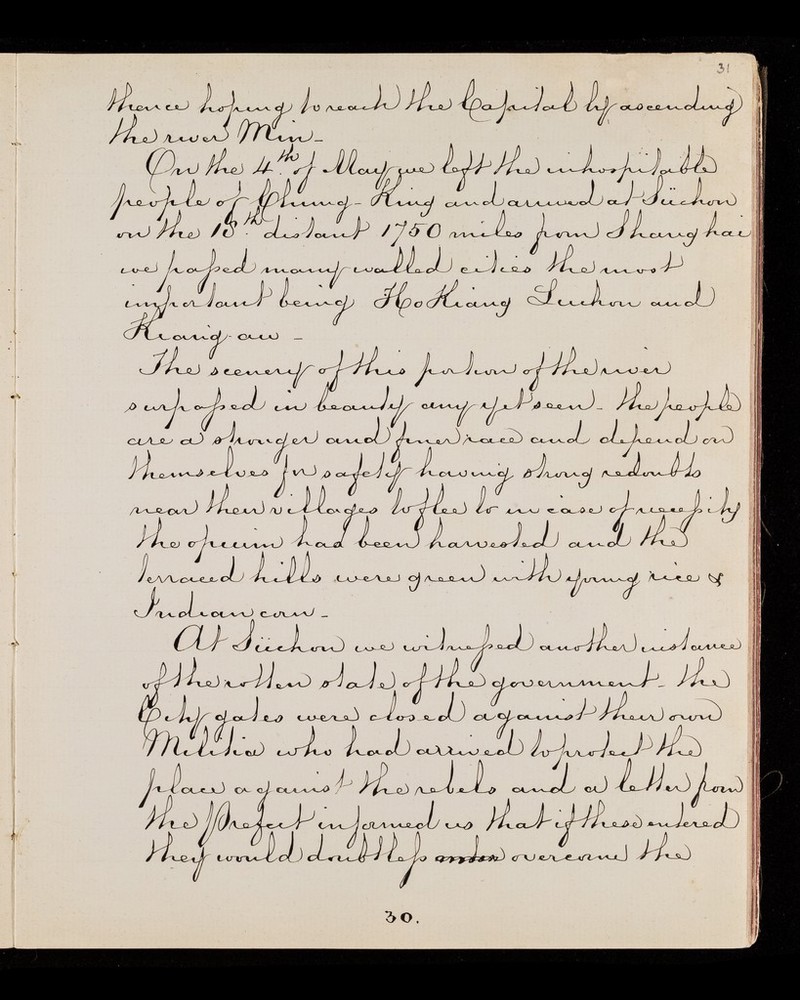 31
thence hoping to reach the Capital by ascending
the river Min -
On the 4th of May we left the inhospitable
people of Chung-King and arrived at Süchow
on the 18th distant 1750 miles from Shanghai
we passed many walled cities the most
important being Ho Kiang Luchow and
Kiang-au -
The scenery of this portion of the river
surpassed in beauty any yet seen - the people
are a stronger and finer race and depend on
themselves for safety having strong redoubts
near their villages to flee to in case of necessity
the opium had been harvested and the
terraced hills were green with young rice &
Indian corn -
At Süchow we witnessed another instance
of the rotten state of the government - the
City gates were closed against their own
Militia who had arrived to protect the
place against the rebels and a letter from
the Prefect informed us that if these entered
they would doubtless overcome the
30.